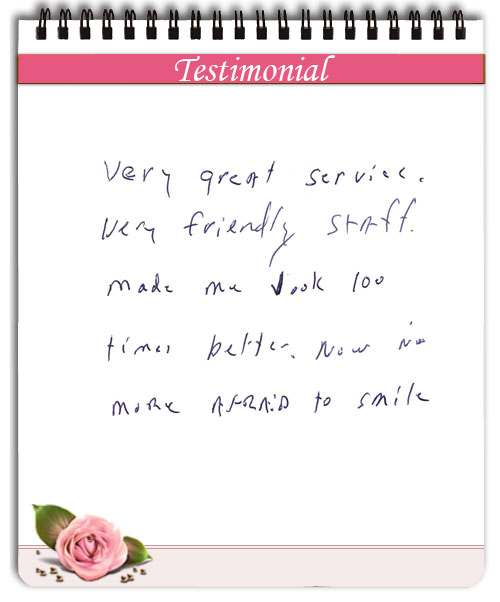 Testimonial
Very great service.
Very friendly staff.
made me look 100
times better. Now no
more AFRAID to smile